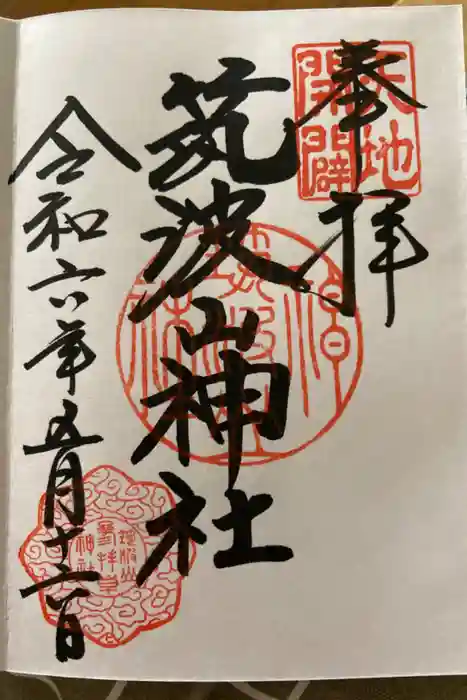 奉拝
天地開闢
筑波山神社
令和六年五月十六日